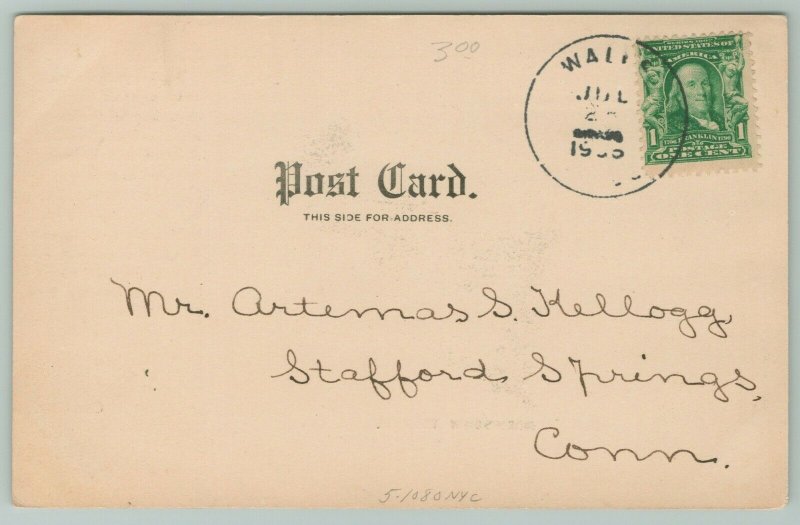 3.00
JUL
SERIES 1902
UNITED STATES OF
AMERICA
1 FRANKLIN 1
POSTAGE
ONE CENT
Post Card.
THIS SIDE FOR ADDRESS.
Mr. Artemas S. Kellogg,
Stafford Springs,
Conn.
5-1080NYC